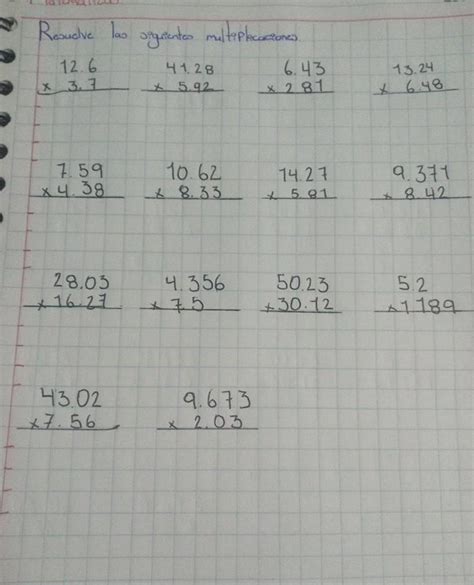 Resuelve las siguientes multiplicaciones
12.6 41.28 6.43 13.24
x 3.7 x 5.92 x 2 81 x 6.48
7.59 10.62 14.27 9.371
x 4.38 x 8.33 x 5.81 x 8.42
28.03 4.356 50.23 5.2
x 16.27 x 7.5 x 30.12 x 1 189
43.02 9.673
x 7.56 x 2.03